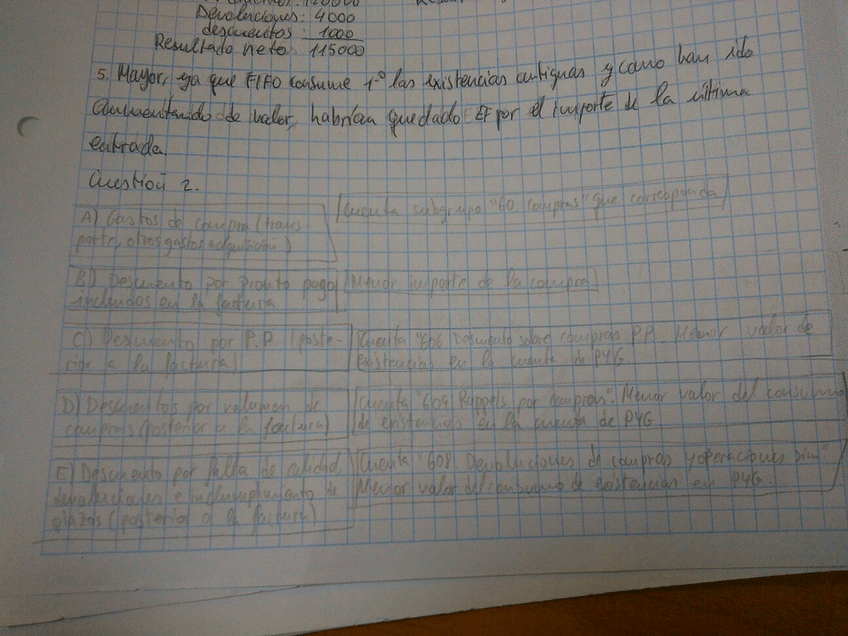 120000
Devoluciones: 4000
descuentos: 1000
Resultado neto 115000
5. Mayor, ya que FIFO consume 1º las existencias antiguas y como han ido
aumentando de valor, habrían quedado EF por el importe de la última
entrada.
Cuestión 2.
A) Gastos de compra (trans-
porte, otros gastos adquisición)
Cuenta subgrupo "60 compras" que corresponda
B) Descuento por pronto pago
incluidos en la factura
Menor importe de la compra
C) Descuento por P.P. (poste-
rior a la factura)
Cuenta "606 Descuento sobre compras P.P. Menor valor de
existencias en la cuenta de PYG
D) Descuentos por volumen de
compras (posterior a la factura)
Cuenta "609 Rappels por compras". Menor valor del consumo
de existencias en la cuenta de PYG
E) Descuento por falta de calidad,
devoluciones e incumplimiento de
plazos (posterior a la factura)
Cuenta "608. Devoluciones de compras y operaciones sim"
Menor valor del consumo de existencias en PYG.